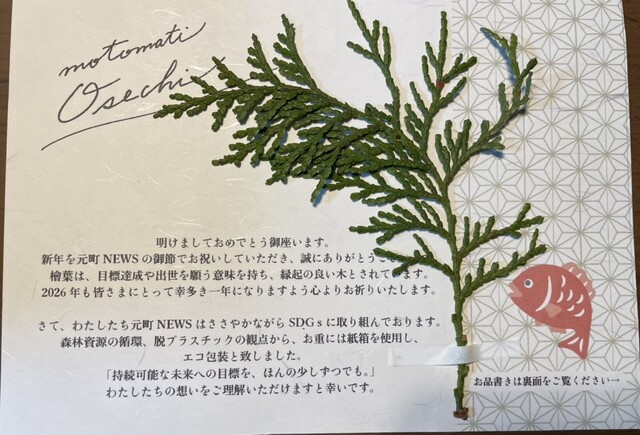 motomati
Osechi
明けましておめでとう御座います。
新年を元町NEWSの御節でお祝いしていただき、誠にありがとうご
檜葉は、目標達成や出世を願う意味を持ち、縁起の良い木とされています。
2026年も皆さまにとって幸多き一年になりますよう心よりお祈りいたします。
さて、わたしたち元町NEWSはささやかながらSDGsに取り組んでおります。
森林資源の循環、脱プラスチックの観点から、お重には紙箱を使用し、
エコ包装と致しました。
「持続可能な未来への目標を、ほんの少しずつでも。」
わたしたちの想いをご理解いただけますと幸いです。
お品書きは裏面をご覧ください→